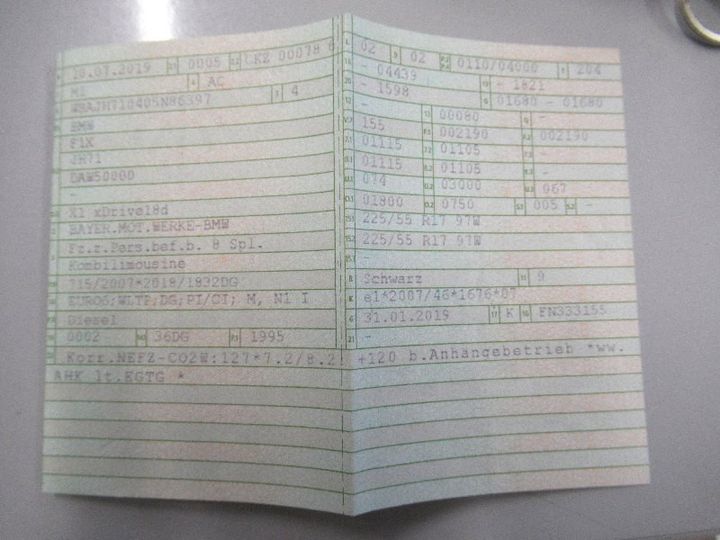 10.07.2019 0005 CKZ 00078 6
M1 AC
WBAJH710405N86397 4
BMW
F1X
JH71
DAW50000
-
X1 xDrive18d
BAYER.MOT.WERKE-BMW
Fz.z.Pers.bef.b. 8 Spl.
Kombilimousine
715/2007*2018/1832DG
EURO6;WLTP;DG;PI/CI; M, N1 I
Diesel
0002 36DG 1995
Korr.NEFZ-CO2W:127*7.2/8.2: +120 b.Anhängebetrieb *ww.
AHK lt.EGTG *
02 02 0110/04000 204
- 04439 - 1821
- 1598 01680 - 01680
- 00080 -
155 002190 002190
01115 01105 -
01115 01105 -
074 03000 067
01800 0750 005 -
225/55 R17 97W
225/55 R17 97W
-
Schwarz 9
e1*2007/46*1676*07
31.01.2019 K FN333155
-